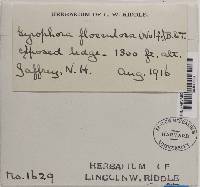 HERBARIUM OF L. W. RIDDLE.
Gyrophora flocculosa (Wulf.) B. & T.
exposed ledge - 1300 ft. alt.
Jaffrey, N. H. Aug. 1916
HARVARD
UNIVERSITY
HERBARIUM OF
LINCOLN W. RIDDLE
No. 1629